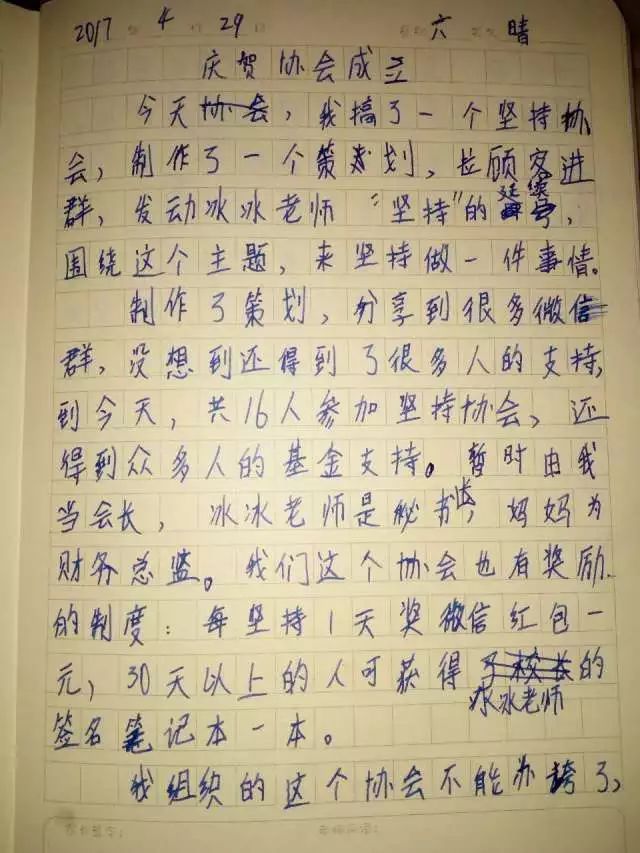 2017 4 29 六 晴
庆贺协会成立
今天协会，我搞了一个坚持协
会，制作了一个策划，拉顾客进
群，发动冰冰老师“坚持”的延续号，
围绕这个主题，来坚持做一件事情。
制作了策划，分享到很多微信
群，没想到还得到了很多人的支持，
到今天，共16人参加坚持协会，还
得到众多人的基金支持。暂时由我
当会长，冰冰老师是秘书长，妈妈为
财务总监。我们这个协会也有奖励
的制度：每坚持1天奖微信红包一
元，30天以上的人可获得冰冰老师的
签名笔记本一本。
我组织的这个协会不能办垮了，